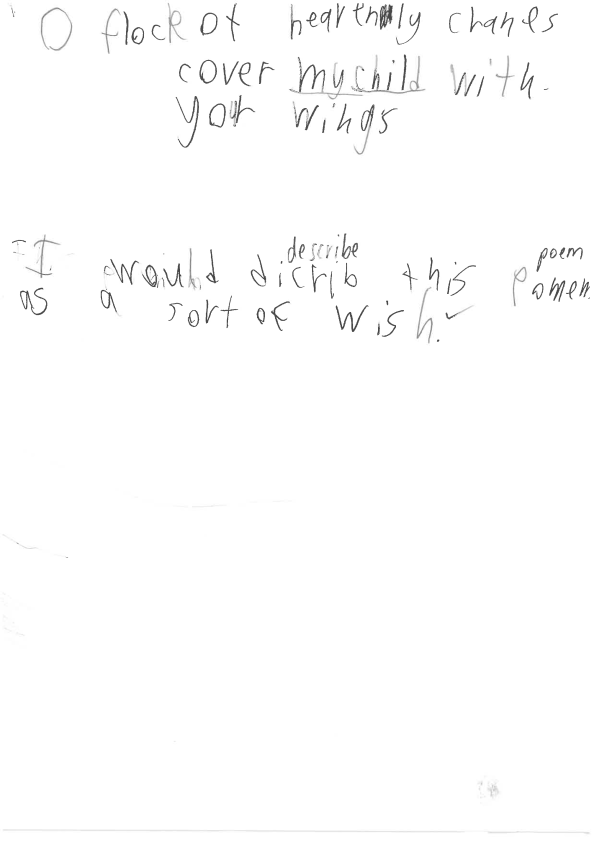 O flock of heavenly chanes
cover my child with
your wings
describe poem
I would dicrib this pomem
as a sort of wish.